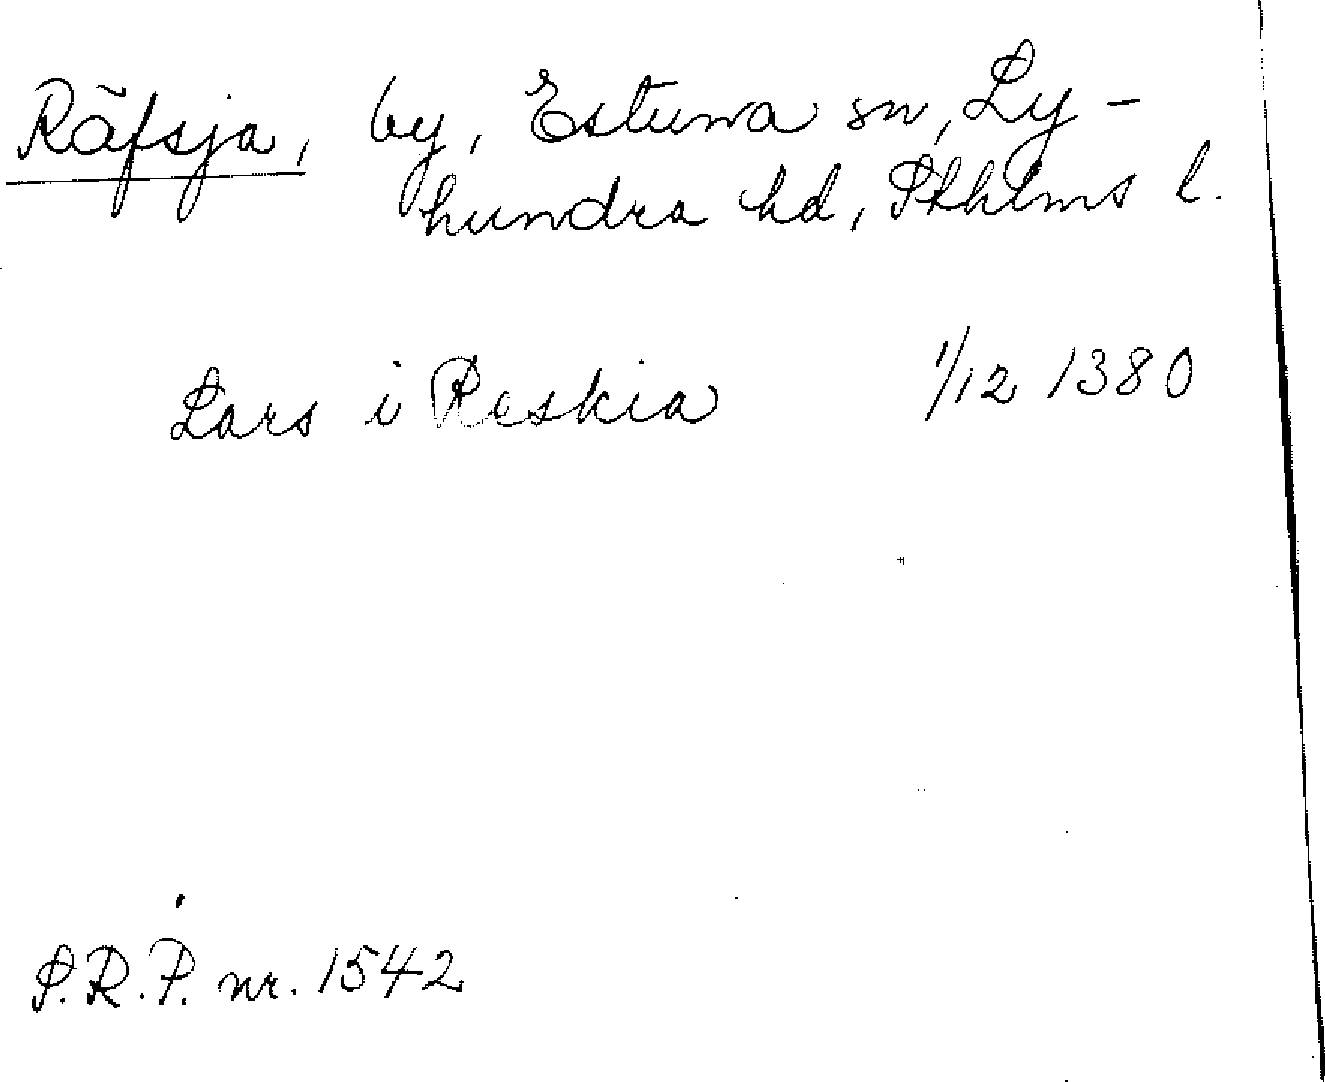 Räfsja, by, Estuna sn, Ly-
hundra hd, Sthlms l.
Lars i Reskia 1/12 1380
S.R.P. nr. 1542